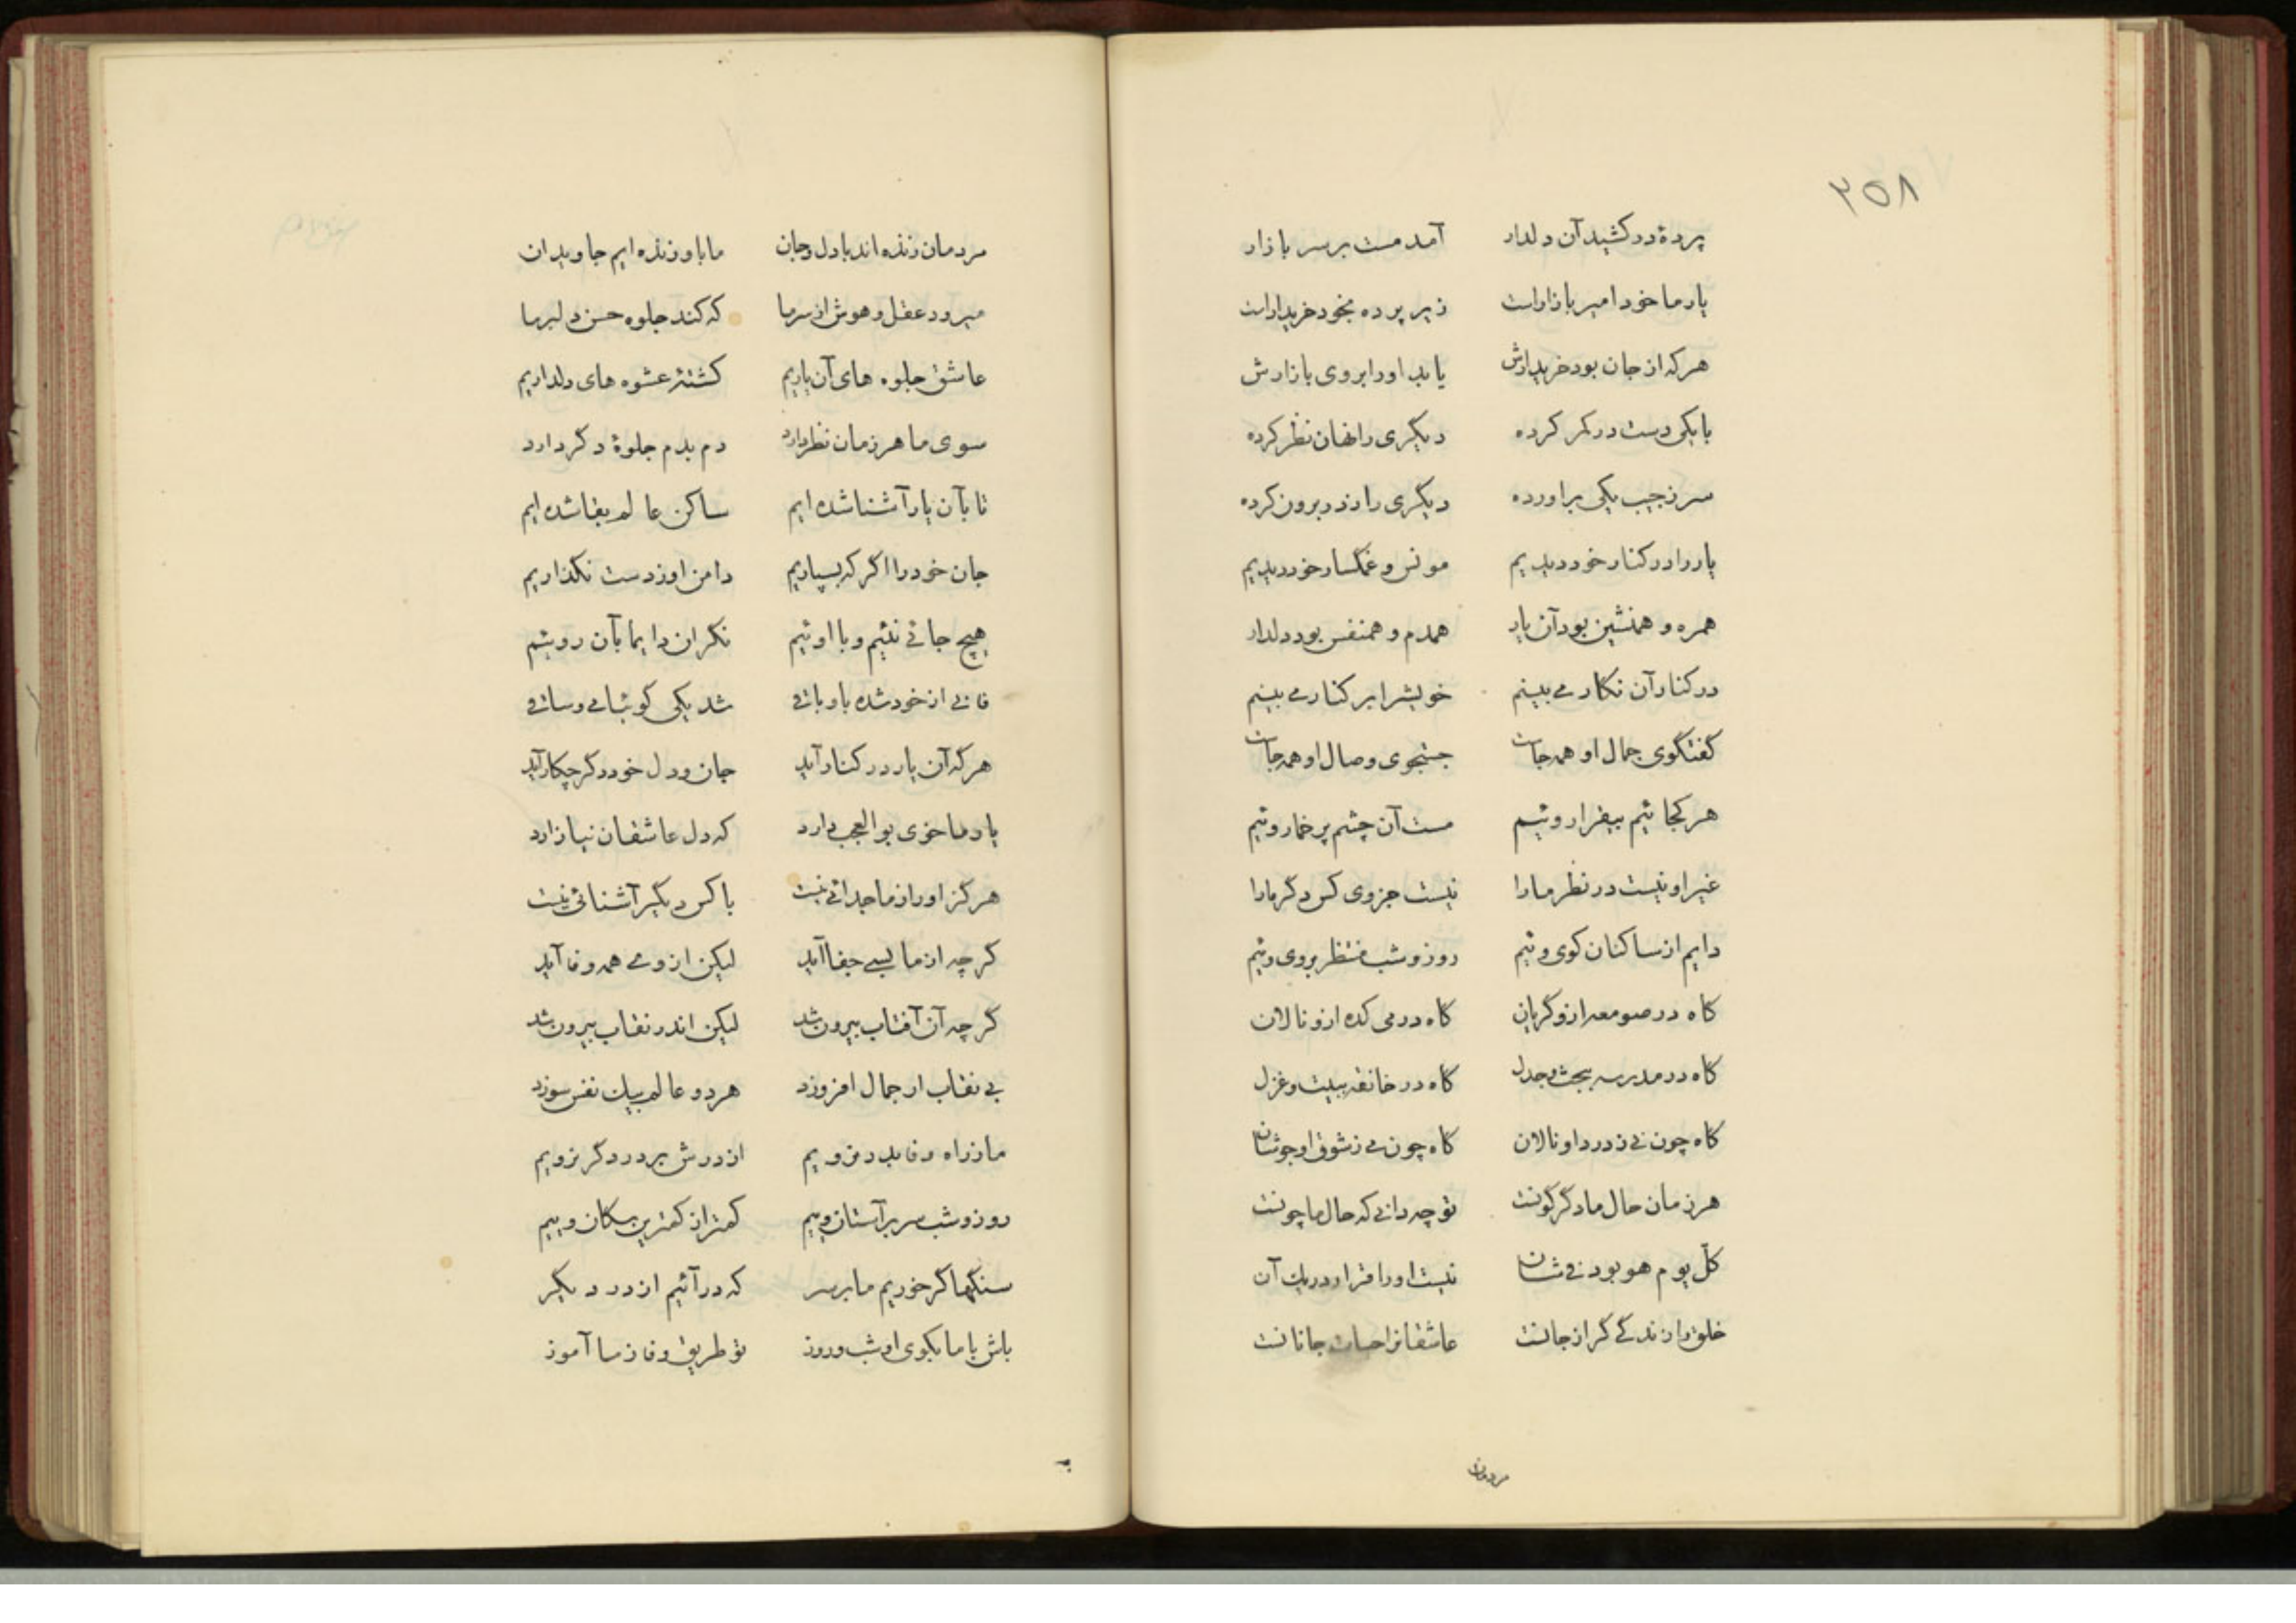 ۳۵۸
پردهٔ در کشید آن دلدار آمد مست بر سر بازار
یار ما خود امیر بازارست زیر پرده بخود خریدارست
هر که از جان بود خریدارش یابد او را بروی بازارش
با یکی دست در کمر کرده دیگری را نهان نظر کرده
سر ز جیب یکی براورده دیگری را ز در برون کرده
یار را در کنار خود دیدیم مونس و غمگسار خود دیدیم
همره و همنشین بود آن یار همدم و همنفس بود دلدار
در کنار آن نگار می بینم خویش را بر کنار می بینم
گفتگوی جمال او همه جاست جستجوی وصال او همه جاست
هر کجائیم بیقرار وئیم مست آن چشم پر خمار وئیم
غیر او نیست در نظر ما را نیست جز وی کس دگر ما را
دایم از ساکنان کوی وئیم روز و شب منتظر بروی وئیم
گاه در صومعه ازو گریان گاه در می کده ازو نالان
گاه در مدرسه ببحث و جدل گاه در خانقه ببیت و غزل
گاه چون نی ز درد او نالان گاه چون می ز شوق او جوشان
هر زمان حال ما دگرگونست تو چه دانی که حال ما چونست
کل یوم هو بود فی شان نیست او را قرار در یک آن
خلق را زندگی گر از جانست عاشقانرا حیات جانانست
مردمان
مردمان زنده اند با دل و جان ما باو زنده ایم جاویدان
میرود عقل و هوش از سر ما که کند جلوه حسن دلبر ما
عاشق جلوه های آن یاریم کشتهٔ عشوه های دلداریم
سوی ما هر زمان نظر دارد دم بدم جلوهٔ دگر دارد
تا بآن یار آشنا شده ایم ساکن عالم بقا شده ایم
جان خود را اگر که بسپاریم دامن او ز دست نگذاریم
هیچ جائی نئیم و با اوئیم نگران دایما بآن روئیم
فانی از خود شده باو باقی شد یکی گوئیا می و ساقی
هر که آن یار در کنار آید جان و دل خود دگر چکار آید
یار ما خوی بوالعجب دارد که دل عاشقان نیازارد
هرگز او را ز ما جدائی نیست با کس دیگر آشنائی نیست
گرچه از ما بسی جفا آید لیکن از وی همه وفا آید
گرچه آن آفتاب بیرون شد لیکن اندر نقاب بیرون شد
بی نقاب ار جمال افروزد هر دو عالم بیک نفس سوزد
ما ز راه وفا بدر نرویم از درش بر در دگر نرویم
روز و شب سر بر آستان وییم کمتر از کمترین سگان وییم
سنگها گر خوریم ما بر سر که درآئیم از در دیگر
باش با ما بکوی او شب و روز تو طریق وفا ز ما آموز